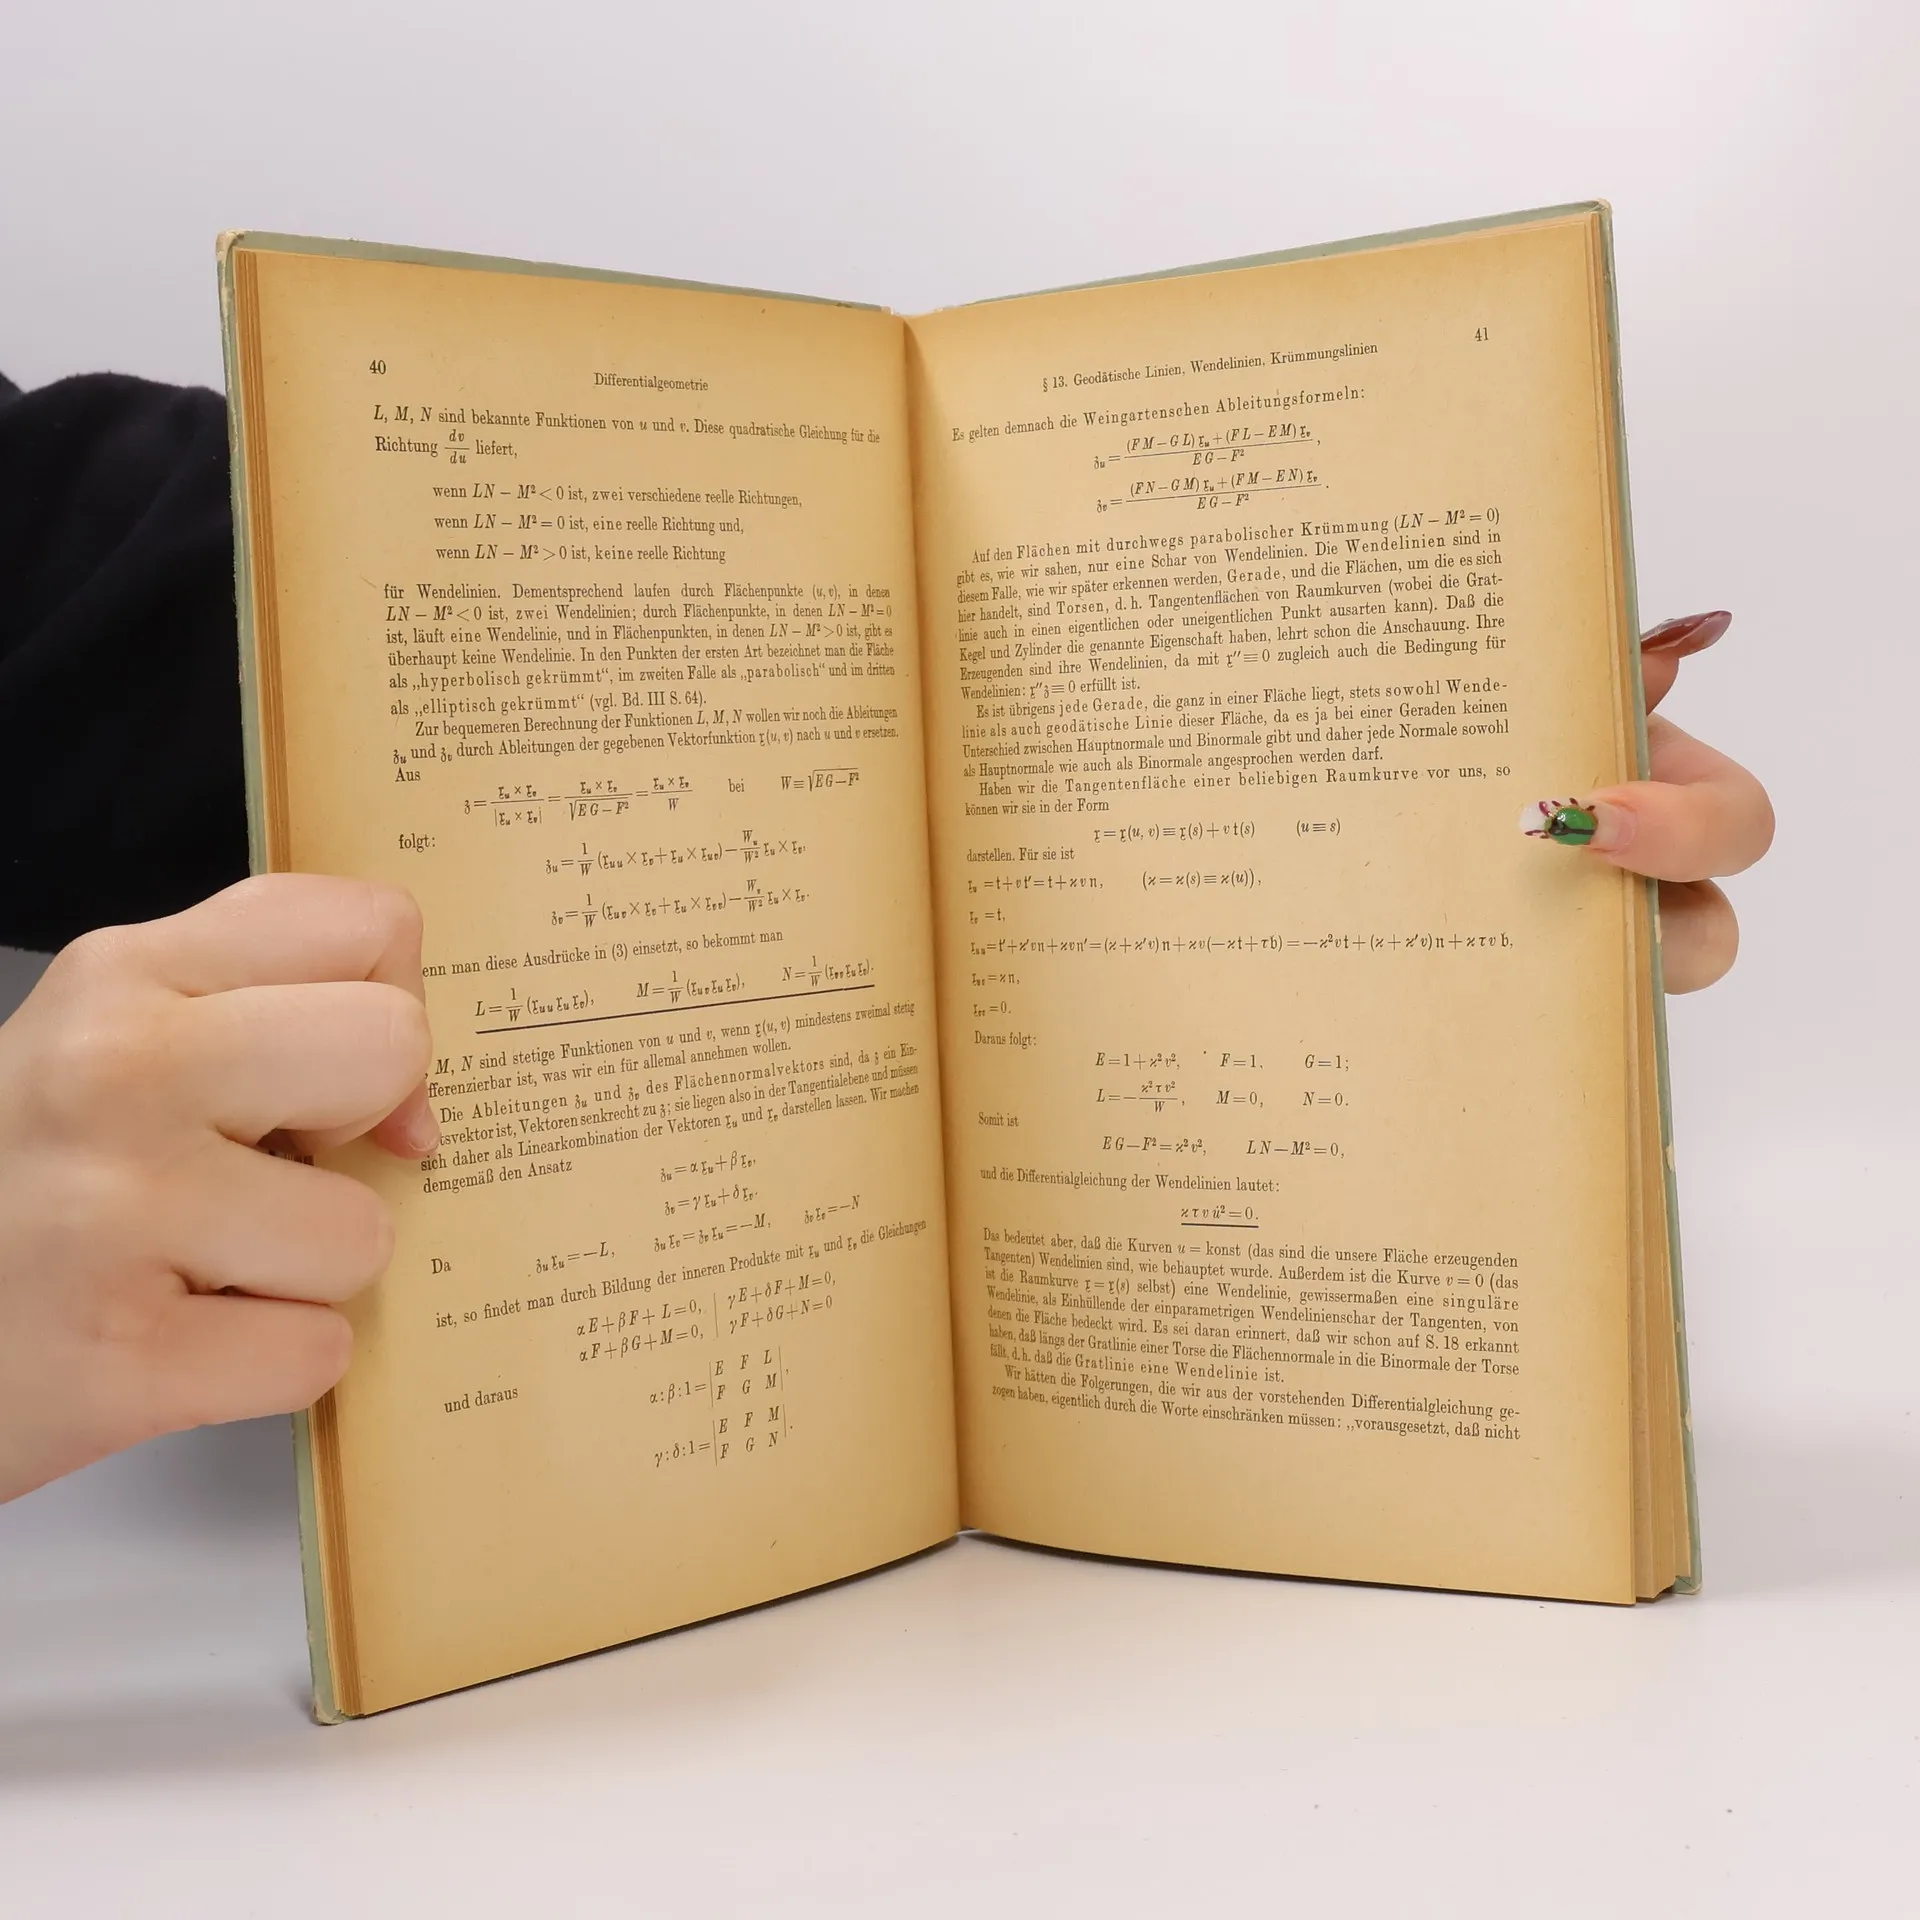 40
Differentialgeometrie
L, M, N sind bekannte Funktionen von u und v. Diese quadratische Gleichung für die
Richtung dv/du liefert,
wenn LN − M² < 0 ist, zwei verschiedene reelle Richtungen,
wenn LN − M² = 0 ist, eine reelle Richtung und,
wenn LN − M² > 0 ist, keine reelle Richtung
für Wendelinien. Dementsprechend laufen durch Flächenpunkte (u, v), in denen
LN − M² < 0 ist, zwei Wendelinien; durch Flächenpunkte, in denen LN − M² = 0
ist, läuft eine Wendelinie, und in Flächenpunkten, in denen LN − M² > 0 ist, gibt es
überhaupt keine Wendelinie. In den Punkten der ersten Art bezeichnet man die Fläche
als „hyperbolisch gekrümmt“, im zweiten Falle als „parabolisch“ und im dritten
als „elliptisch gekrümmt“ (vgl. Bd. III S. 64).
Zur bequemeren Berechnung der Funktionen L, M, N wollen wir noch die Ableitungen
𝔷ᵤ und 𝔷ᵥ durch Ableitungen der gegebenen Vektorfunktion 𝔵(u, v) nach u und v ersetzen.
Aus
𝔷 = (𝔵ᵤ × 𝔵ᵥ)/|𝔵ᵤ × 𝔵ᵥ| = (𝔵ᵤ × 𝔵ᵥ)/√(EG − F²) = (𝔵ᵤ × 𝔵ᵥ)/W bei W ≡ √(EG − F²)
folgt:
𝔷ᵤ = 1/W (𝔵ᵤᵤ × 𝔵ᵥ + 𝔵ᵤ × 𝔵ᵤᵥ) − Wᵤ/W² 𝔵ᵤ × 𝔵ᵥ,
𝔷ᵥ = 1/W (𝔵ᵤᵥ × 𝔵ᵥ + 𝔵ᵤ × 𝔵ᵥᵥ) − Wᵥ/W² 𝔵ᵤ × 𝔵ᵥ.
enn man diese Ausdrücke in (3) einsetzt, so bekommt man
L = 1/W (𝔵ᵤᵤ 𝔵ᵤ 𝔵ᵥ), M = 1/W (𝔵ᵤᵥ 𝔵ᵤ 𝔵ᵥ), N = 1/W (𝔵ᵥᵥ 𝔵ᵤ 𝔵ᵥ).
, M, N sind stetige Funktionen von u und v, wenn 𝔵(u, v) mindestens zweimal stetig
fferenzierbar ist, was wir ein für allemal annehmen wollen.
Die Ableitungen 𝔷ᵤ und 𝔷ᵥ des Flächennormalvektors sind, da 𝔷 ein Ein-
tsvektor ist, Vektoren senkrecht zu 𝔷; sie liegen also in der Tangentialebene und müssen
sich daher als Linearkombination der Vektoren 𝔵ᵤ und 𝔵ᵥ darstellen lassen. Wir machen
demgemäß den Ansatz
𝔷ᵤ = α 𝔵ᵤ + β 𝔵ᵥ,
𝔷ᵥ = γ 𝔵ᵤ + δ 𝔵ᵥ.
Da 𝔷ᵤ 𝔵ᵤ = −L, 𝔷ᵤ 𝔵ᵥ = 𝔷ᵥ 𝔵ᵤ = −M, 𝔷ᵥ 𝔵ᵥ = −N
ist, so findet man durch Bildung der inneren Produkte mit 𝔵ᵤ und 𝔵ᵥ die Gleichungen
αE + βF + L = 0, | γE + δF + M = 0,
αF + βG + M = 0, | γF + δG + N = 0
und daraus
α : β : 1 = | E F L |
| F G M |,
γ : δ : 1 = | E F M |
| F G N |.
§ 13. Geodätische Linien, Wendelinien, Krümmungslinien
41
Es gelten demnach die Weingartenschen Ableitungsformeln:
𝔷ᵤ = ((FM − GL) 𝔵ᵤ + (FL − EM) 𝔵ᵥ)/(EG − F²),
𝔷ᵥ = ((FN − GM) 𝔵ᵤ + (FM − EN) 𝔵ᵥ)/(EG − F²).
Auf den Flächen mit durchwegs parabolischer Krümmung (LN − M² = 0)
gibt es, wie wir sahen, nur eine Schar von Wendelinien. Die Wendelinien sind in
diesem Falle, wie wir später erkennen werden, Gerade, und die Flächen, um die es sich
hier handelt, sind Torsen, d. h. Tangentenflächen von Raumkurven (wobei die Grat-
linie auch in einen eigentlichen oder uneigentlichen Punkt ausarten kann). Daß die
Kegel und Zylinder die genannte Eigenschaft haben, lehrt schon die Anschauung. Ihre
Erzeugenden sind ihre Wendelinien, da mit 𝔵″ ≡ 0 zugleich auch die Bedingung für
Wendelinien: 𝔵″𝔷 ≡ 0 erfüllt ist.
Es ist übrigens jede Gerade, die ganz in einer Fläche liegt, stets sowohl Wende-
linie als auch geodätische Linie dieser Fläche, da es ja bei einer Geraden keinen
Unterschied zwischen Hauptnormale und Binormale gibt und daher jede Normale sowohl
als Hauptnormale wie auch als Binormale angesprochen werden darf.
Haben wir die Tangentenfläche einer beliebigen Raumkurve vor uns, so
können wir sie in der Form
𝔵 = 𝔵(u, v) ≡ 𝔵(s) + v 𝔱(s) (u ≡ s)
darstellen. Für sie ist
𝔵ᵤ = 𝔱 + v𝔱′ = 𝔱 + ϰv𝔫, (ϰ = ϰ(s) ≡ ϰ(u)),
𝔵ᵥ = 𝔱,
𝔵ᵤᵤ = 𝔱′ + ϰ′v𝔫 + ϰv𝔫′ = (ϰ + ϰ′v)𝔫 + ϰv(−ϰ𝔱 + τ𝔟) = −ϰ²v𝔱 + (ϰ + ϰ′v)𝔫 + ϰτv𝔟,
𝔵ᵤᵥ = ϰ𝔫,
𝔵ᵥᵥ = 0.
Daraus folgt:
E = 1 + ϰ²v², F = 1, G = 1;
L = −ϰ²τv²/W, M = 0, N = 0.
Somit ist
EG − F² = ϰ²v², LN − M² = 0,
und die Differentialgleichung der Wendelinien lautet:
ϰτv u̇² = 0.
Das bedeutet aber, daß die Kurven u = konst (das sind die unsere Fläche erzeugenden
Tangenten) Wendelinien sind, wie behauptet wurde. Außerdem ist die Kurve v = 0 (das
ist die Raumkurve 𝔵 = 𝔵(s) selbst) eine Wendelinie, gewissermaßen eine singuläre
Wendelinie, als Einhüllende der einparametrigen Wendelinienschar der Tangenten, von
denen die Fläche bedeckt wird. Es sei daran erinnert, daß wir schon auf S. 18 erkannt
haben, daß längs der Gratlinie einer Torse die Flächennormale in die Binormale der Torse
fällt, d. h. daß die Gratlinie eine Wendelinie ist.
Wir hätten die Folgerungen, die wir aus der vorstehenden Differentialgleichung ge-
zogen haben, eigentlich durch die Worte einschränken müssen: „vorausgesetzt, daß nicht